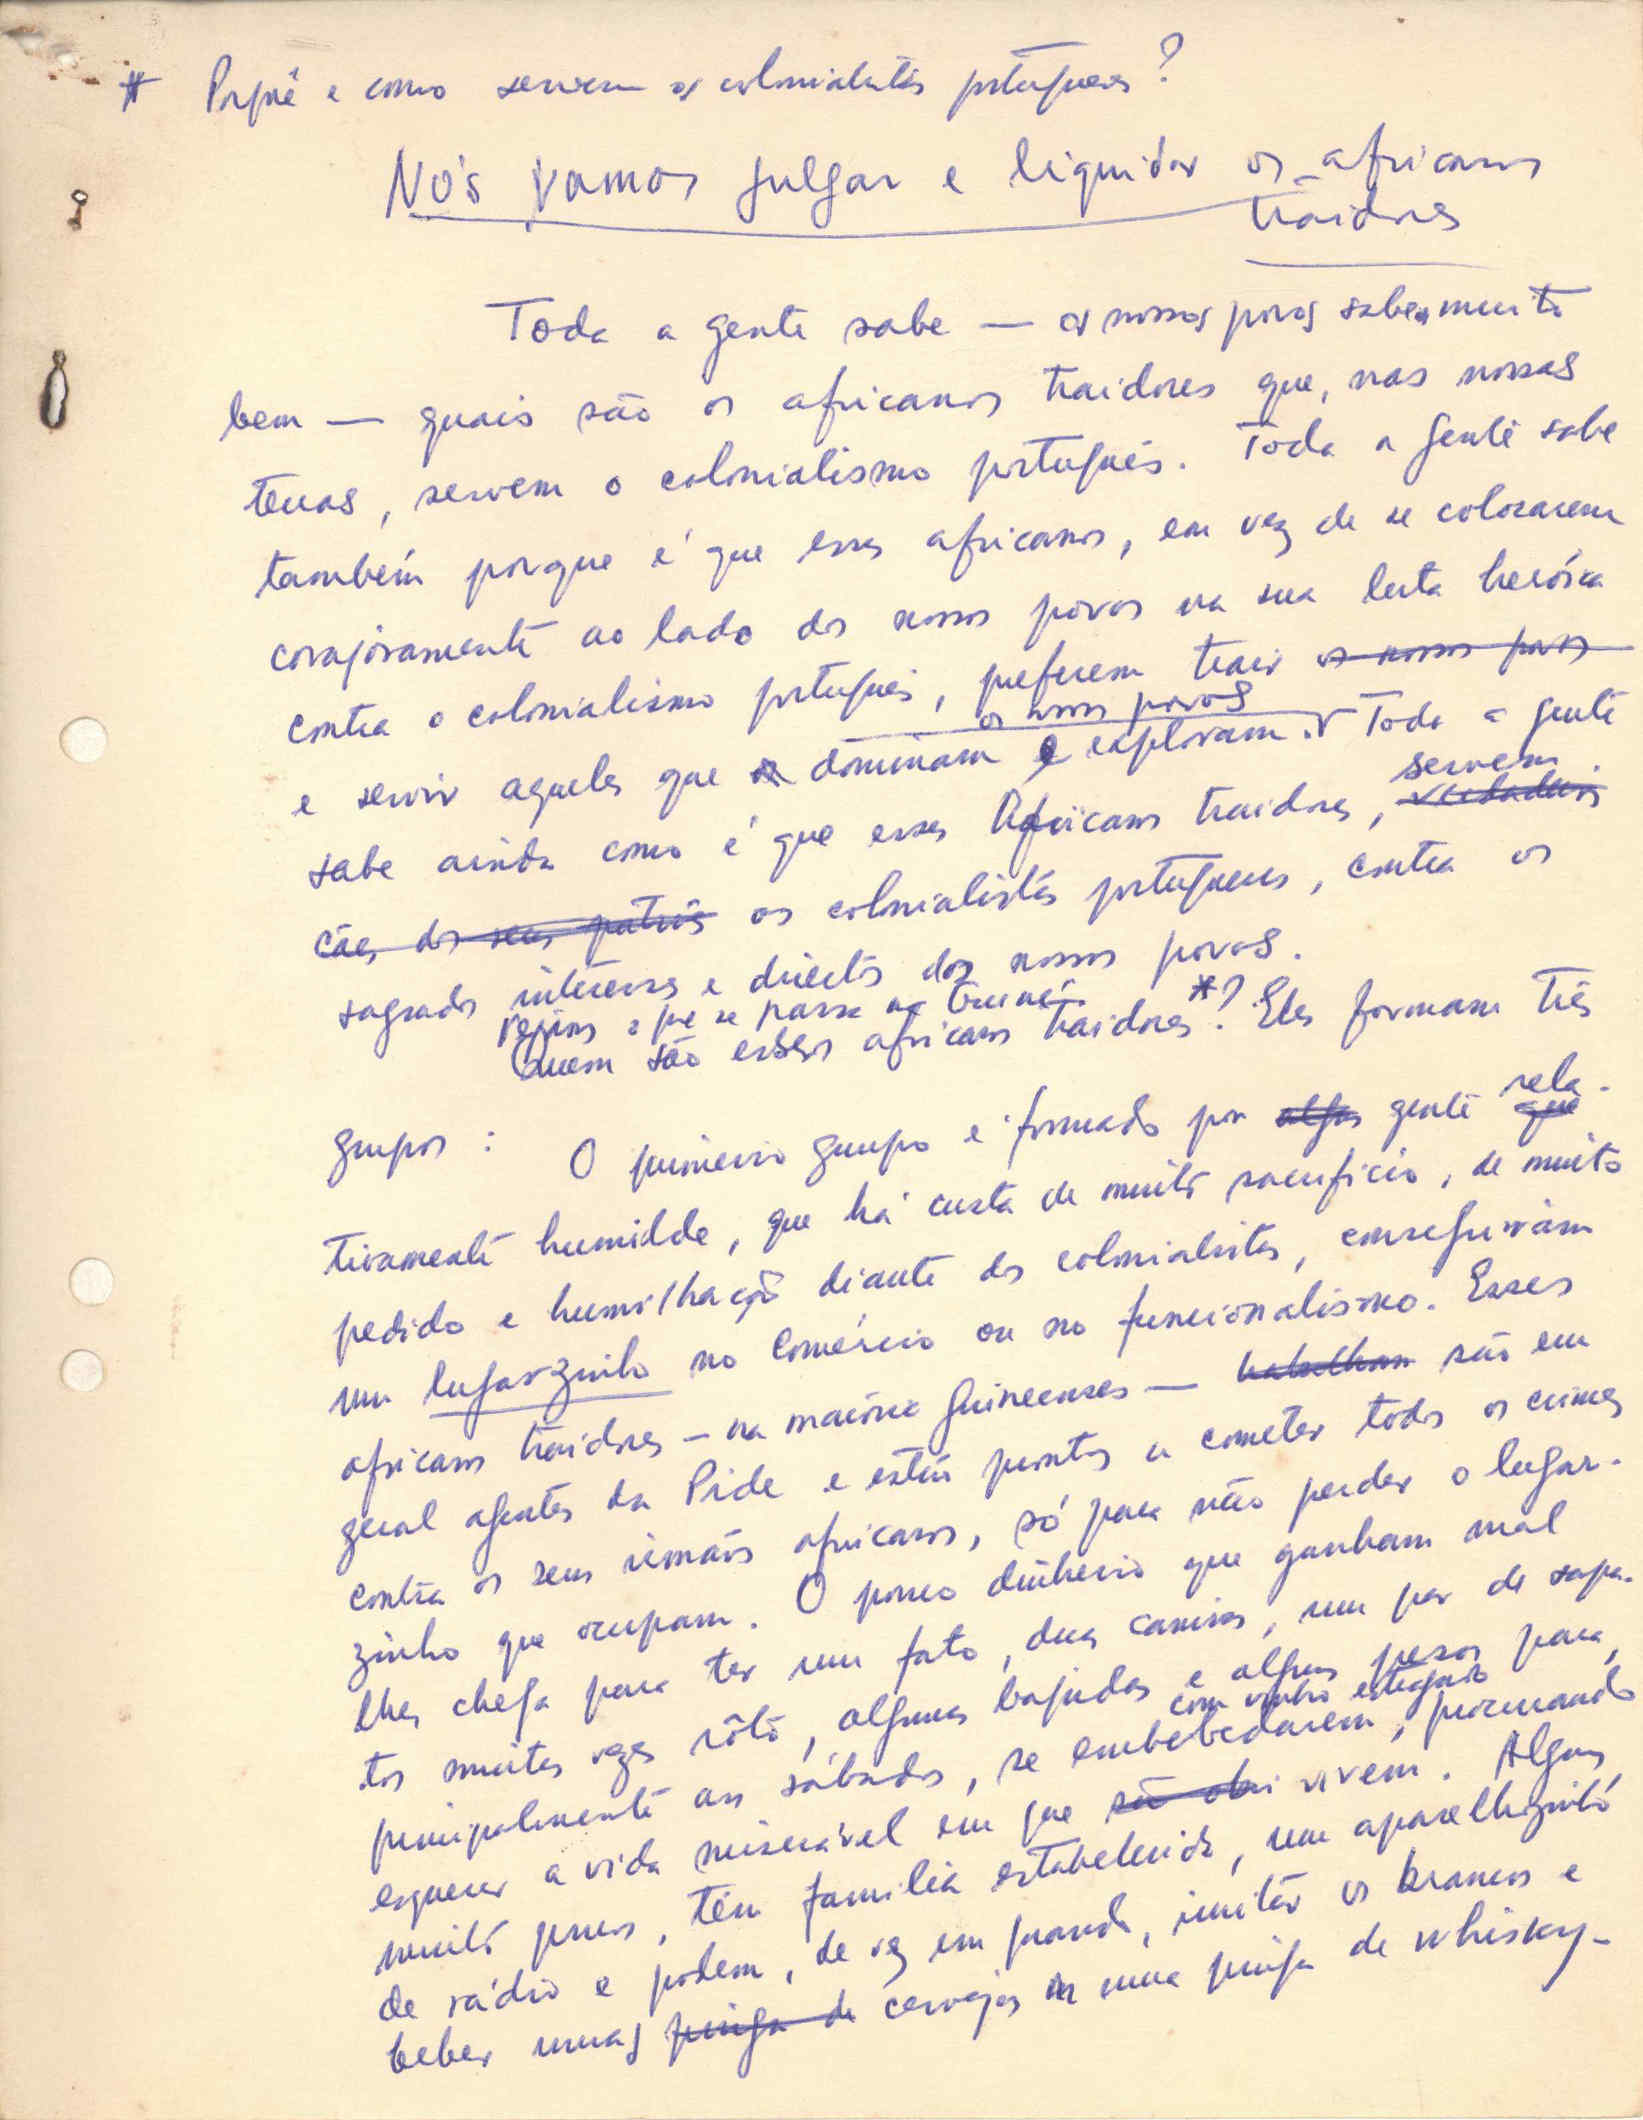 * Porquê e como servem os colonialistas portugueses?
Nós vamos julgar e liquidar os africanos
traidores
Toda a gente sabe — os nossos povos sabem muito
bem — quais são os africanos traidores que, nas nossas
terras, servem o colonialismo português. Toda a gente sabe
também porque é que esses africanos, em vez de se colocarem
corajosamente ao lado dos nossos povos na sua luta heróica
contra o colonialismo português, preferem trair os nossos povos
os nossos povos
e servir aqueles que dominam e exploram. Toda a gente
servem
sabe ainda como é que esses Africanos traidores, verdadeiros
cães dos seus patrões os colonialistas portugueses, contra os
sagrados interesses e direitos dos nossos povos.
Vejamos o que se passa na Guiné.
Quem são esses africanos traidores*? Eles formam três
rela-
grupos: O primeiro grupo é formado por alguns gente que
tivamente humilde, que há custa de muito sacrifício, de muito
pedido e humilhação diante dos colonialistas, conseguiram
um lugarzinho no Comércio ou no funcionalismo. Esses
africanos traidores — na maioria guineenses — trabalham são em
geral agentes da Pide e estão prontos a cometer todos os crimes
contra os seus irmãos africanos, só para não perder o lugar-
zinho que ocupam. O pouco dinheiro que ganham mal
lhes chega para ter um fato, duas camisas, um par de sapa-
tos muitas vezes rôto, algumas bajudas e alguns pesos para,
com vinho estragado
principalmente aos sábados, se embebedarem, procurando
esquecer a vida miserável em que são vivem. Alguns,
muito poucos, têm família estabelecida, um aparelhozinho
de rádio e podem, de vez em quando, imitar os brancos e
beber umas pinga de cervejas ou uma pinga de whisky-